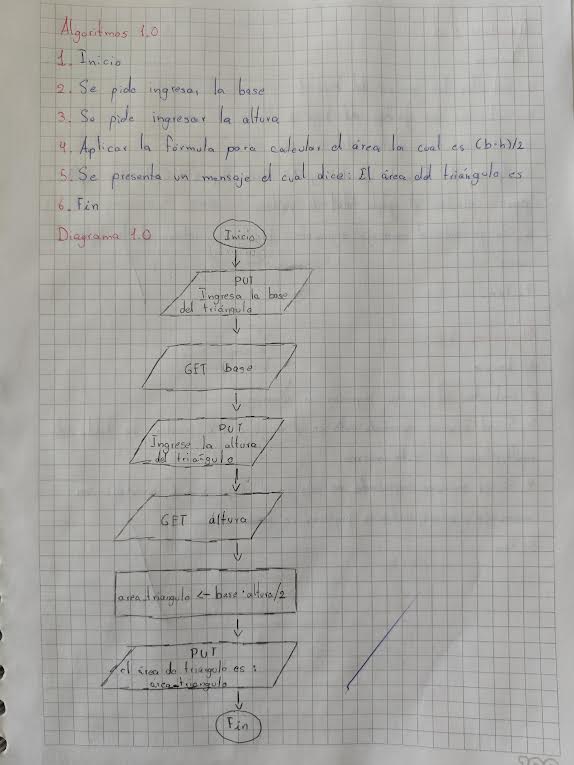 Algoritmos 1.0
1. Inicio
2. Se pide ingresar la base
3. Se pide ingresar la altura
4. Aplicar la fórmula para calcular el área la cual es (b·h)/2
5. Se presenta un mensaje el cual dice: El área del triángulo es
6. Fin
Diagrama 1.0
Inicio
PUT
Ingresa la base
del triángulo
GET base
PUT
Ingrese la altura
del triángulo
GET áltura
area_triangulo <- base·altura/2
PUT
el área de triangulo es:
area_triangulo
Fin